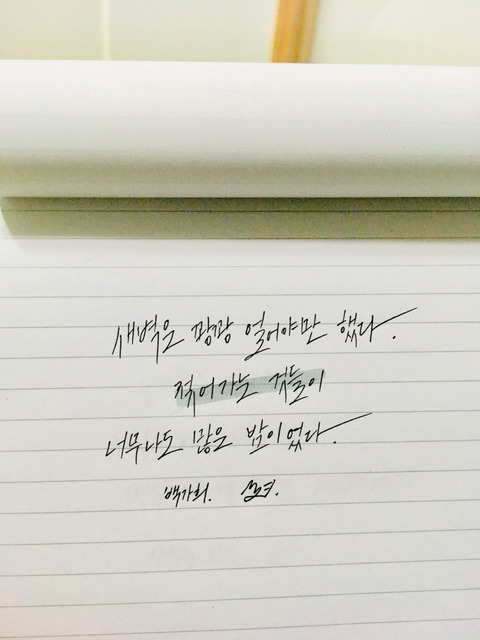 새벽은 꽝꽝 얼어야만 했다.
젖어가는 것들이
너무나도 많은 밤이었다.
백가희.